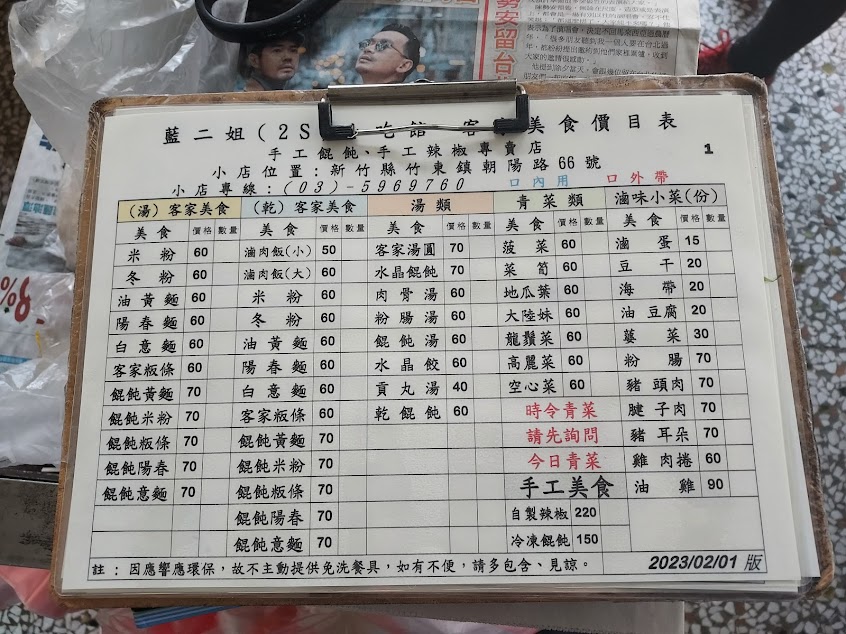 勢安留台
藍二姐(2S 吃館 客 美食價目表
手工餛飩、手工辣椒專賣店
1
小店位置:新竹縣竹東鎮朝陽路66號
小店專線:(03)-5969760 口內用 口外帶
(湯)客家美食 (乾)客家美食 湯類 青菜類 滷味小菜(份)
美食 價格 數量 美食 價格 數量 美食 價格 數量 美食 價格 數量 美食 價格 數量
米粉 60 滷肉飯(小) 50 客家湯圓 70 菠菜 60 滷蛋 15
冬粉 60 滷肉飯(大) 60 水晶餛飩 70 菜筍 60 豆干 20
油黃麵 60 米粉 60 肉骨湯 60 地瓜葉 60 海帶 20
陽春麵 60 冬粉 60 粉腸湯 60 大陸妹 60 油豆腐 20
白意麵 60 油黃麵 60 餛飩湯 60 龍鬚菜 60 薹菜 30
客家粄條 60 陽春麵 60 水晶餃 60 高麗菜 60 粉腸 70
餛飩黃麵 70 白意麵 60 貢丸湯 40 空心菜 60 豬頭肉 70
餛飩米粉 70 客家粄條 60 乾餛飩 60 時令青菜 腱子肉 70
餛飩粄條 70 餛飩黃麵 70 請先詢問 豬耳朵 70
餛飩陽春 70 餛飩米粉 70 今日青菜 雞肉捲 60
餛飩意麵 70 餛飩粄條 70 手工美食 油雞 90
餛飩陽春 70 自製辣椒 220
餛飩意麵 70 冷凍餛飩 150
註:因應響應環保,故不主動提供免洗餐具,如有不便,請多包含、見諒。 2023/02/01 版